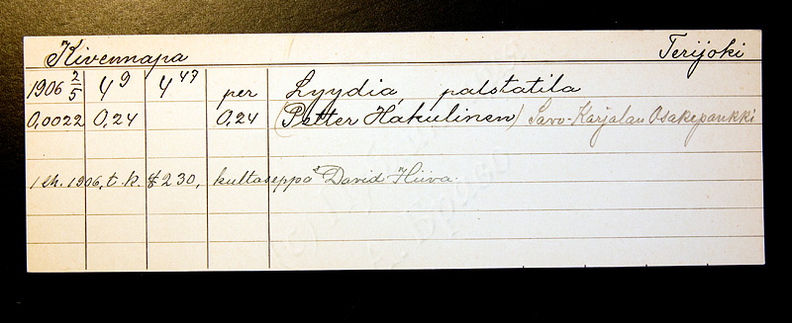 Kivennapa Terijoki
1906 2/5 4⁹ 4⁴⁷ per Lyydia, palstatila
0,0022 0,24 0,24 (Petter Hakulinen) Savo-Karjalan Osakepankki
1 lh. 1906, t.k. § 230, kultaseppä David Hiiva.